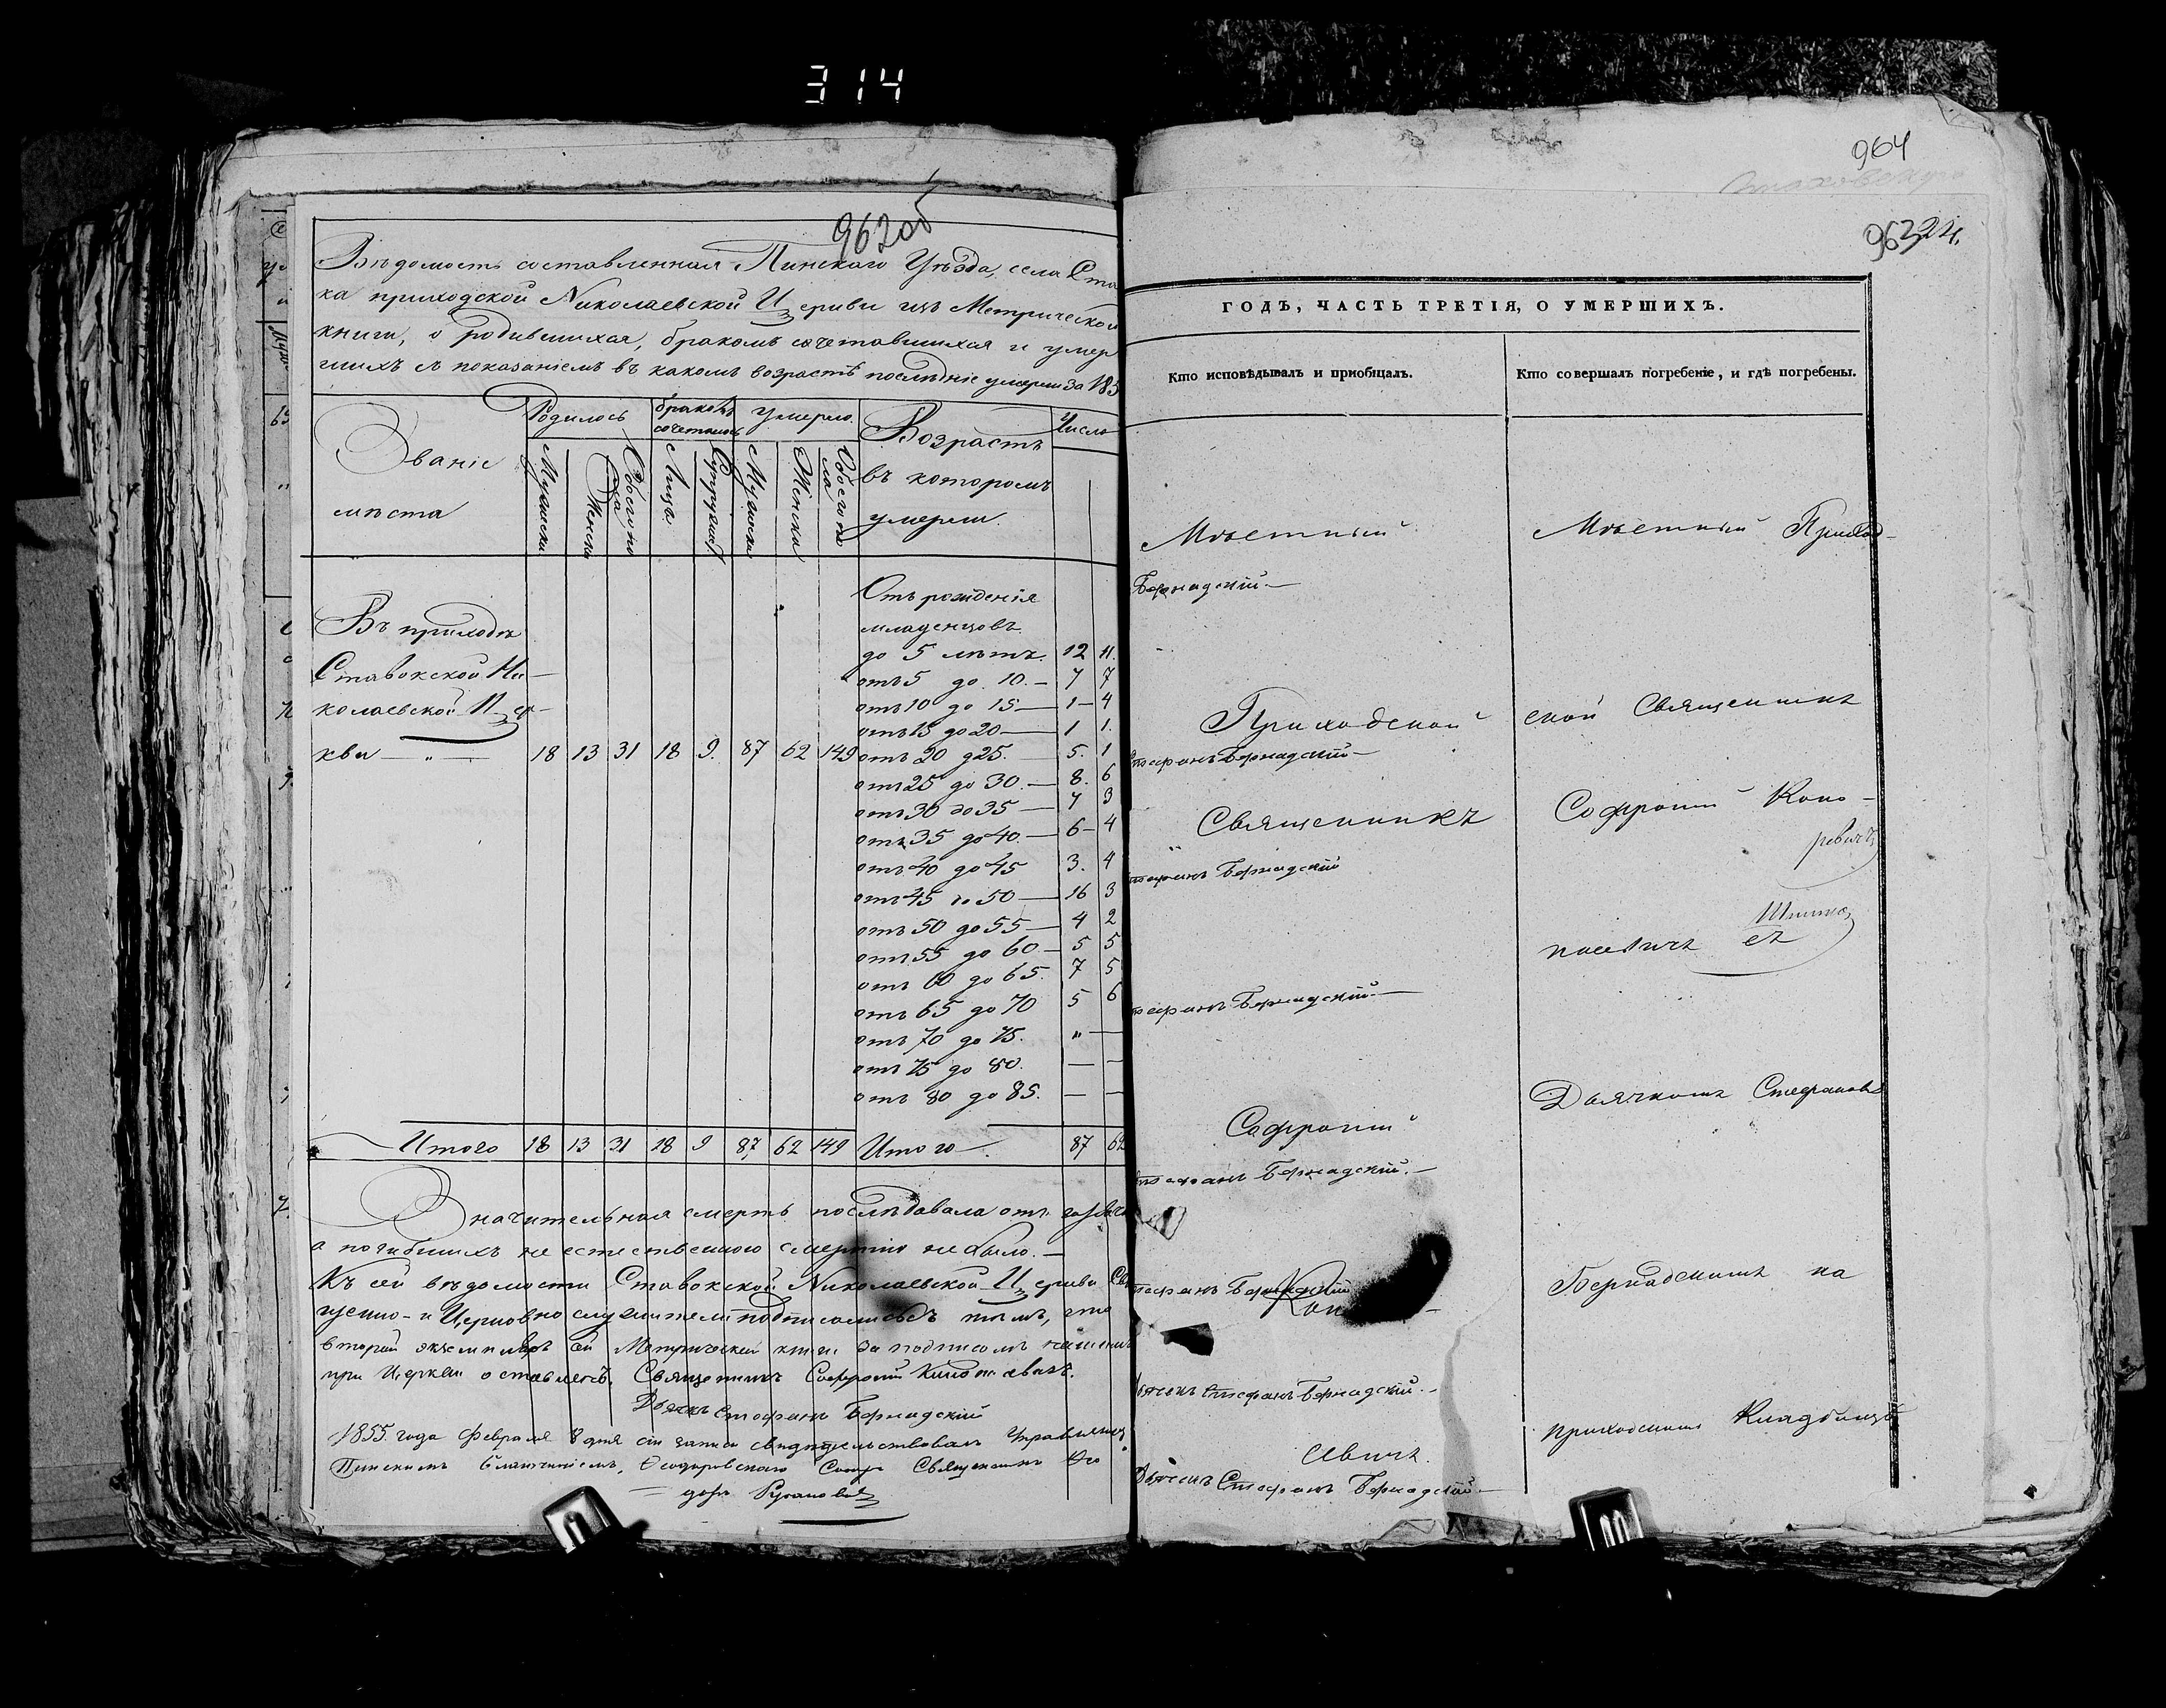 314
962об
Вѣдомость составленная Пинскаго Уѣзда, села Ста
ка приходской Николаевской Церкви изъ Метрической
книги, о родившихся, бракомъ сочетавшихся и умер
шихъ съ показаніемъ въ какомъ возрастѣ послѣдніе умерли за 185
Званіе мѣста
Родилось
бракомъ сочеталось
умерло.
Возрастъ въ которомъ умерли.
Число
Мужеска
Женска
Обоего пола
Лица
Супружествъ
Мужска
Женска
Обоего пола
Въ приходѣ
Ставокской Ни-
колаевской Цер-
кви — „ — 18 13 31 18 9. 87 62 149
Отъ рожденія
младенцовъ
до 5 лѣтъ. 12 11.
отъ 5 до 10. — 7 7
отъ 10 до 15 — 1 — 4
отъ 15 до 20 — 1 1.
отъ 20 д 25. — 5. 1
отъ 25 до 30. — 8. 6
отъ 30 до 35 — 7 3
отъ 35 до 40. — 6 — 4
отъ 40 до 45 3. 4
отъ 45 до 50 — 16 3
отъ 50 до 55 — 4 2
отъ 55 до 60 — 5 5
отъ 60 до 65. 7 5
отъ 65 до 70 5 6
отъ 70 до 75. „ —
отъ 75 до 80. — —
отъ 80 до 85. — —
Итого 18 13 31 18 9 87 62 149 Итого. 87 62
Значительная смерть послѣдовала отъ
а погибшихъ не естественною смертію не было. —
Къ сей вѣдомости Ставокской Николаевской Церкви Свя
щенно- и Церковно служители подписались съ тѣмъ, что
вторый экземпляръ сей Метрической книги за подписомъ нашимъ
при Церкви оставленъ. Священникъ Софроній
Дьякъ Стефанъ Бернадскій
1855. года Февраля 8 дня сіи записи свидѣтельствовалъ Управляющ
Пинскимъ Благочиніемъ, Ѳеодоровскаго Собора Священникъ Ѳео
доръ
964
963 24.
ГОДЪ, ЧАСТЬ ТРЕТІЯ, О УМЕРШИХЪ.
Кто исповѣдывалъ и пріобщалъ.
Кто совершалъ погребеніе, и гдѣ погребены.
Мѣстный
Мѣстный Приход-
Бернадскій. —
Приходской
ской Священникъ
Стефанъ Бернадскій —
Священникъ
Софроній Коно-
Стефанъ Бернадскій
Стефанъ Бернадскій —
Дьячкомъ Стефаномъ
Софроній
Стефанъ Бернадскій. —
Бернадскимъ на
Стефанъ Бернадскій
Кон
Дьячекъ Стефанъ Бернадскій. —
приходскомъ Кладбищѣ
евичъ.
Дьячекъ Стефанъ Бернадскій —